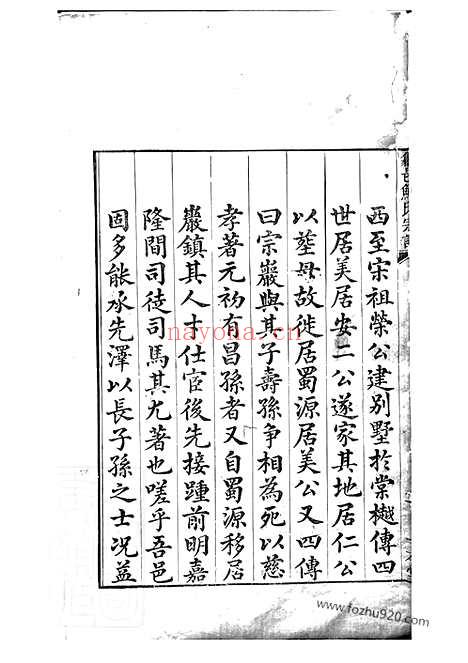 西至宋祖榮公建別墅於棠樾傳四
世居美居安二公遂家其地居仁公
以塟母故徙居蜀源居美公又四傳
曰宗巖與其子壽孫爭相為死以慈
孝著元初有昌孫者又自蜀源移居
巖鎮其人才仕宦後先接踵前明嘉
隆間司徒司馬其尤著也嗟乎吾邑
固多能承先澤以長子孫之士況益
nayona.cn
www.fozhu920.com